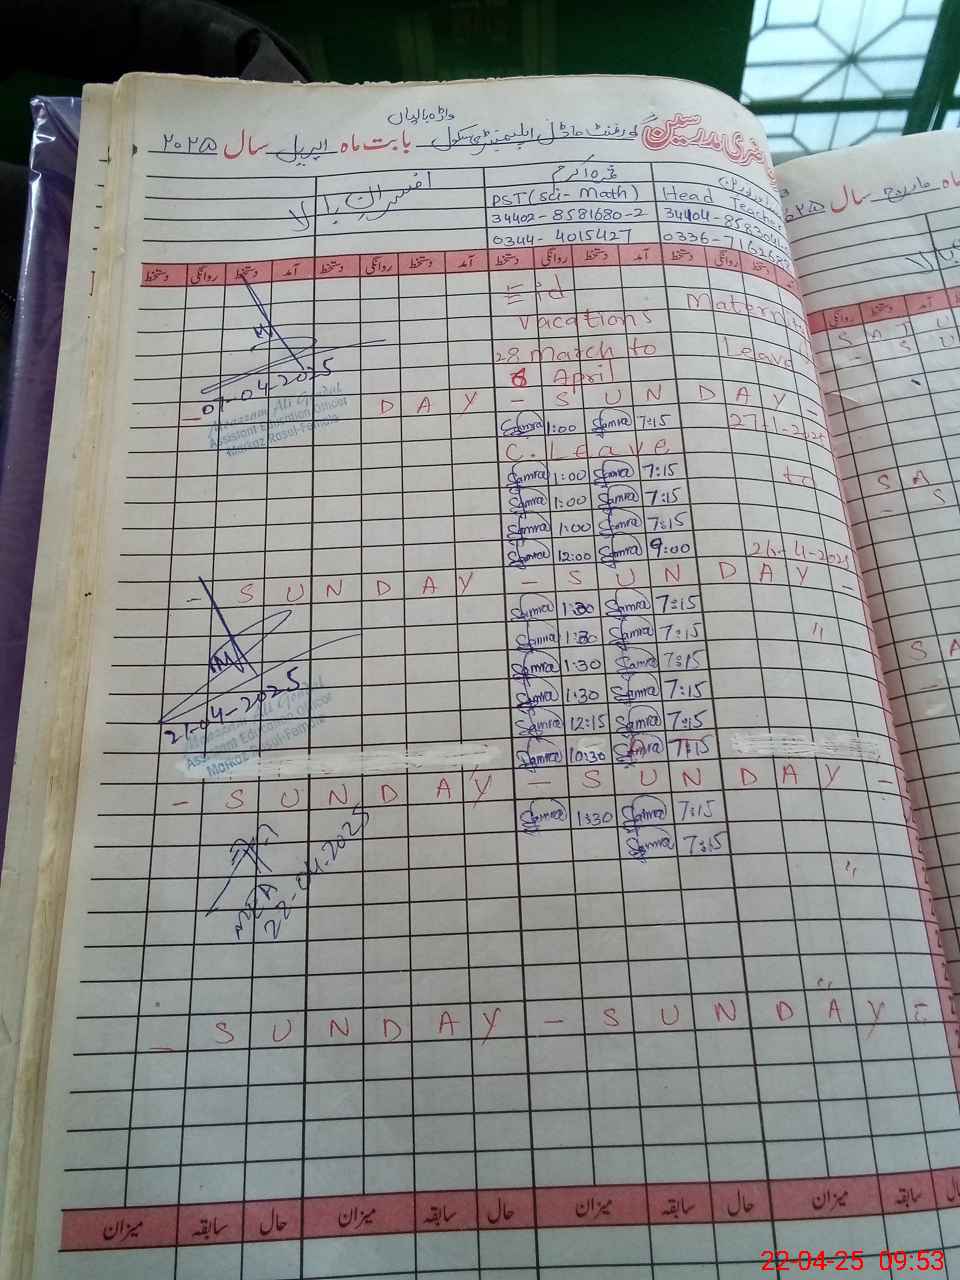 واڑہ بالیاں
حاضری مدرسین گورنمنٹ ماڈل ایلیمنٹری سکول بابت ماہ اپریل سال ۲۰۲۵
افسران بالا
PST (Sci-Math)
34402-8581680-2
0344-4015427
Head Teacher
0336-
دستخط روانگی دستخط آمد دستخط روانگی دستخط آمد دستخط روانگی دستخط آمد دستخط روانگی دستخط
Eid
vacations
28 March to
6 April
Leave
07-04-2025
Assistant Education Officer
Markaz Rasul-Female
- D A Y - S U N D A Y -
Samra 1:00 Samra 7:15
C. Leave
to
Samra 1:00 Samra 7:15
Samra 1:00 Samra 7:15
Samra 1:00 Samra 7:15
Samra 12:00 Samra 9:00
- S U N D A Y - S U N D A Y -
Samra 1:30 Samra 7:15
Samra 1:30 Samra 7:15
"
Samra 1:30 Samra 7:15
Samra 1:30 Samra 7:15
Samra 12:15 Samra 7:15
Samra 10:30 Samra 7:15
21-04-2025
Assistant Education Officer
Markaz Rasul-Female
- S U N D A Y - S U N D A Y -
Samra 1:30 Samra 7:15
Samra 7:15
"
22-04-2025
"
- S U N D A Y - S U N D A Y
میزان سابقہ حال میزان سابقہ حال میزان سابقہ حال میزان سابقہ
ماہ مارچ سال
S A T U
S U
S A
S
S A
22-04-25 09:53